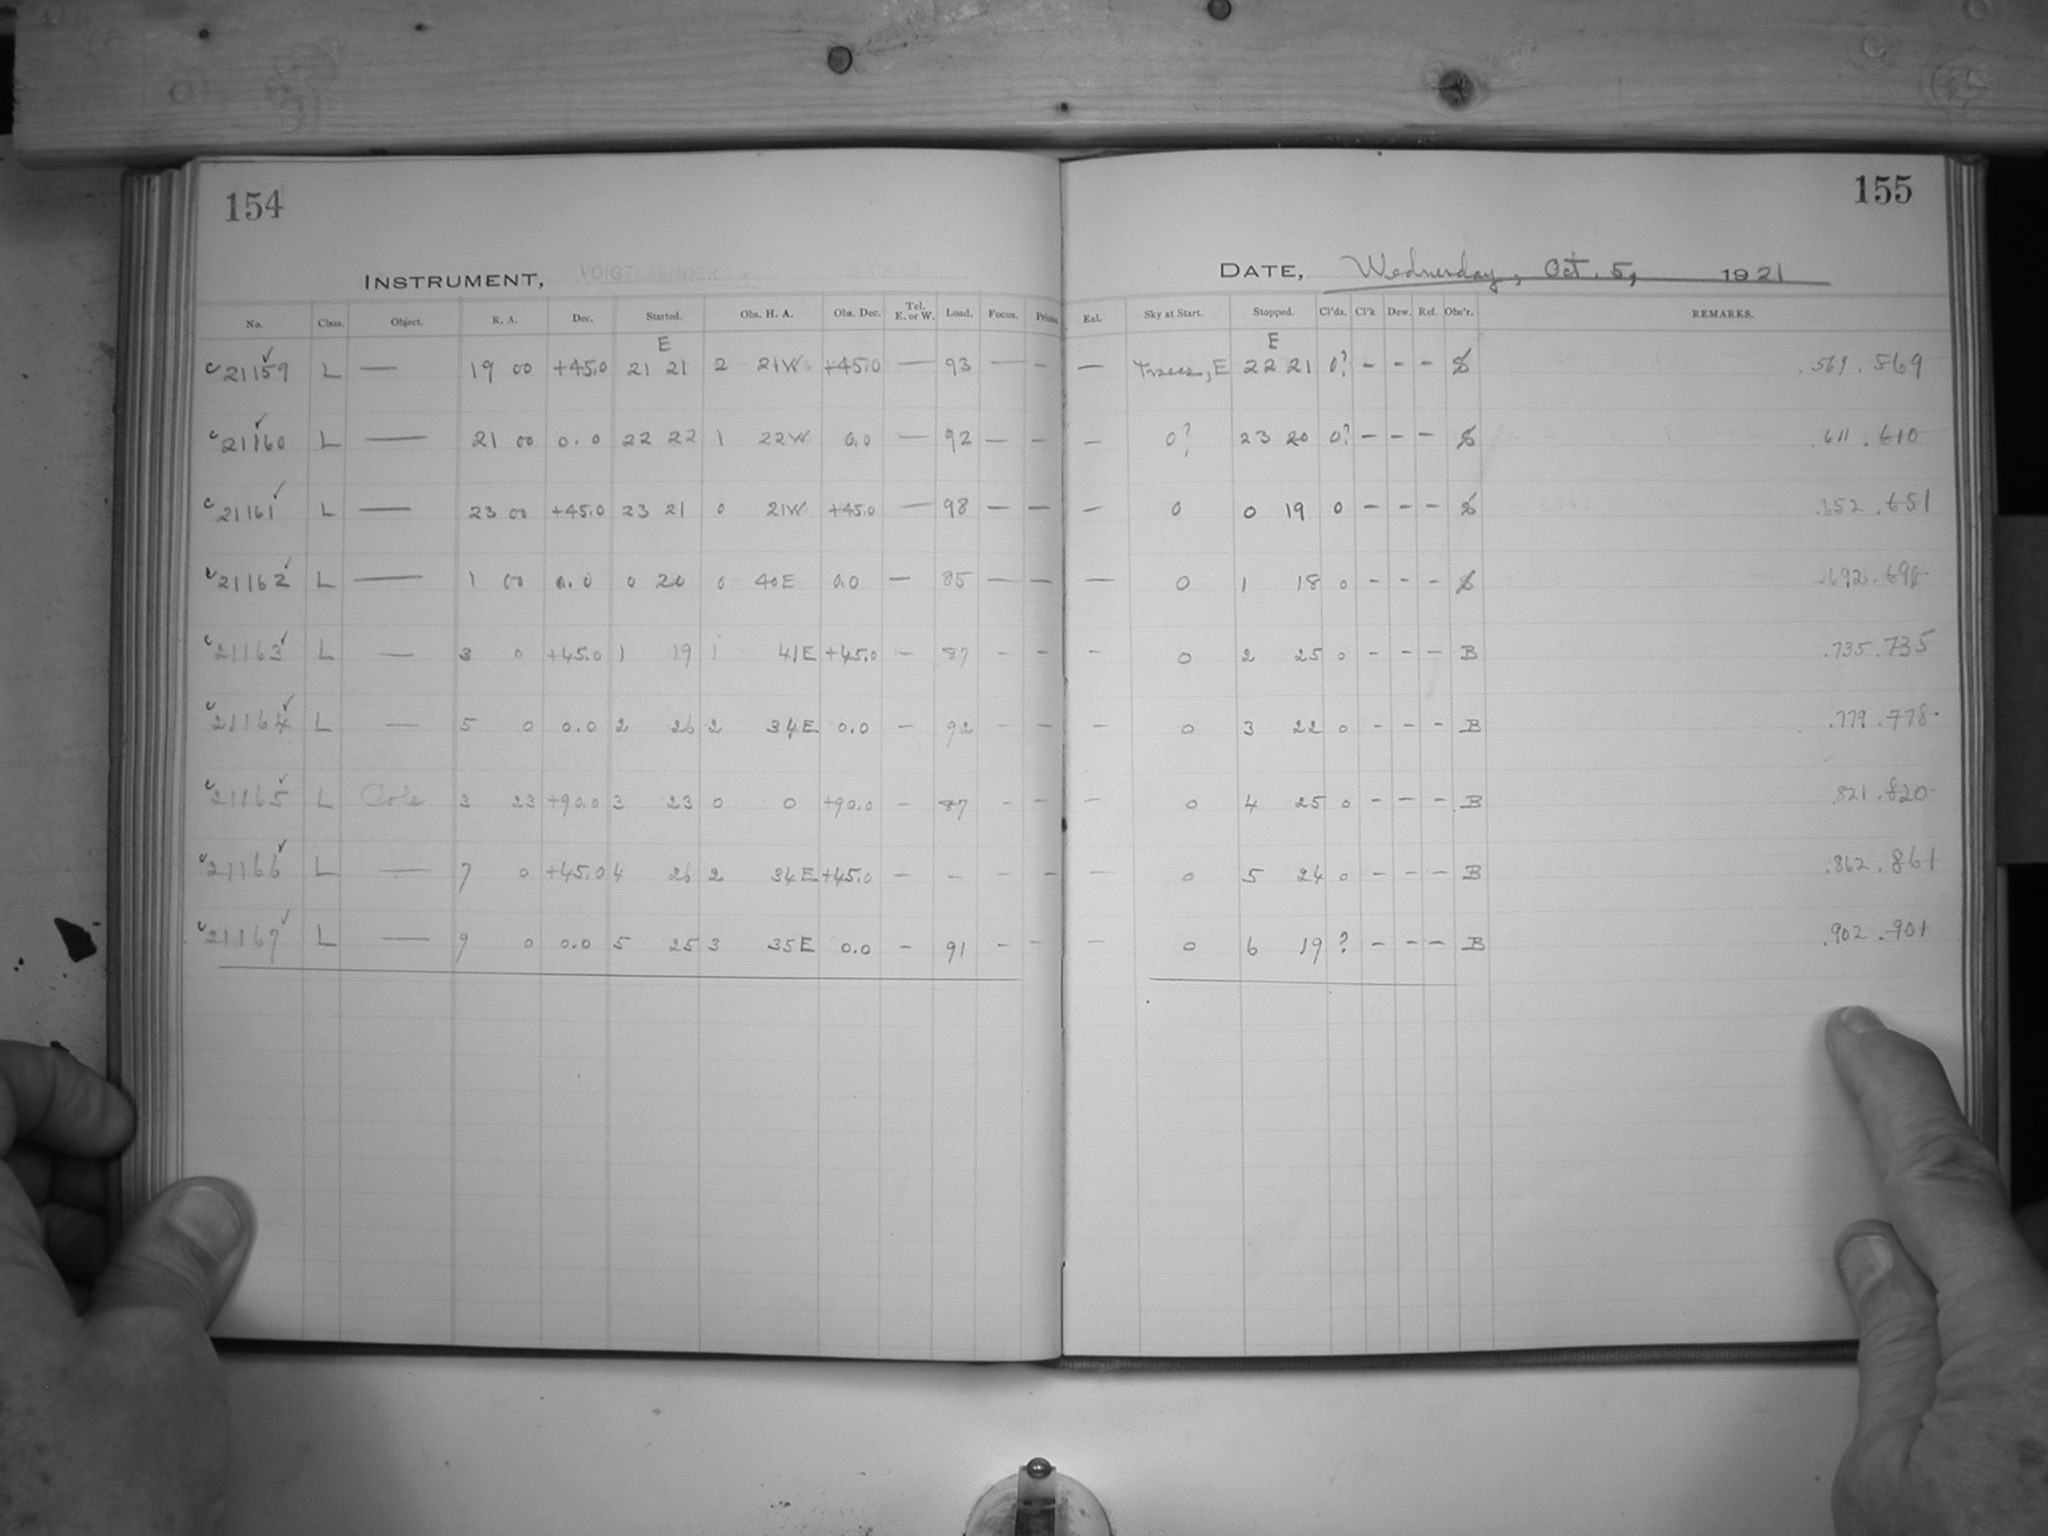 154
155
INSTRUMENT, VOIGTLAENDER
DATE, Wednesday, Oct. 5, 1921
No. Class. Object. R. A. Dec. Started. Obs. H. A. Obs. Dec. Tel. E. or W. Load. Focus. Prisms. Eal. Sky at Start. Stopped. Cl'ds. Cl'k Dew. Ref. Obs'r. REMARKS.
E E
c 21159 ✓ L — 19 00 +45.0 21 21 2 21W +45.0 — 93 — - — Traces, E 22 21 0? - - - S .569 .569
c 21160 ✓ L — 21 00 0.0 22 22 1 22W 0.0 — 92 — - — 0? 23 20 0? - - - S .611 .610
c 21161 ✓ L — 23 00 +45.0 23 21 0 21W +45.0 — 98 — — — 0 0 19 0 - - - S .652 .651
c 21162 ✓ L — 1 00 0.0 0 20 0 40E 0.0 — 85 — — — 0 1 18 0 - - - S .692
c 21163 ✓ L — 3 0 +45.0 1 19 1 41E +45.0 - 87 - - - 0 2 25 0 - - - B .735 .735
c 21164 ✓ L — 5 0 0.0 2 26 2 34E 0.0 - 92 - - - 0 3 22 0 - - - B .779 .778
c 21165 ✓ L 3 23 +90.0 3 23 0 0 +90.0 - 87 - - - 0 4 25 0 - - - B .821 .820
c 21166 ✓ L — 7 0 +45.0 4 26 2 34E +45.0 - - - - - 0 5 24 0 - - - B .862 .861
c 21167 ✓ L — 9 0 0.0 5 25 3 35E 0.0 - 91 - - - 0 6 19 ? - - - B .902 .901